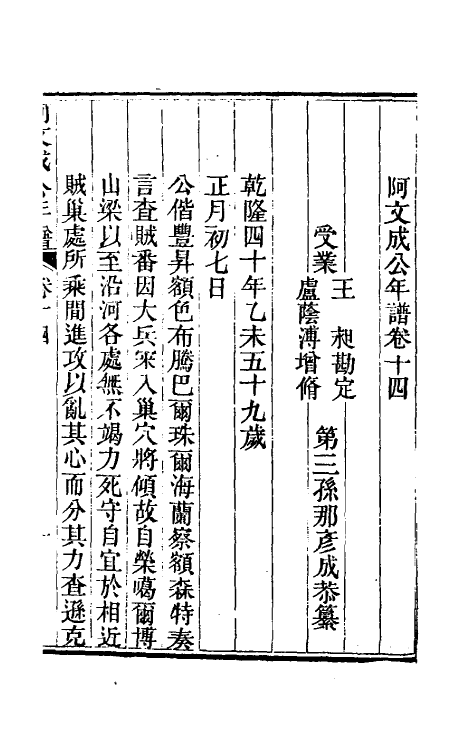 阿文成公年譜卷十四
受業 王昶勘定 盧蔭溥增脩 第三孫那彥成恭纂
乾隆四十年乙未五十九歲
正月初七日
公偕豐昇額色布騰巴爾珠爾海蘭察額森特奏
言查賊番因大兵深入巢穴將傾故自榮噶爾博
山梁以至沿河各處無不竭力死守自宜於相近
賊巢處所乘間進攻以亂其心而分其力查遜克
阿文成公年譜 卷十四